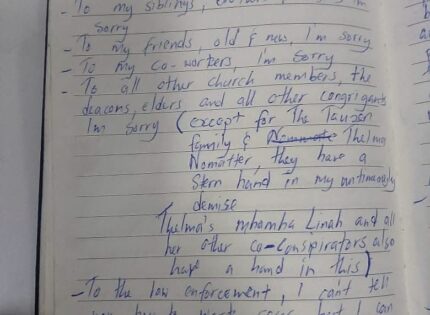 - To my siblings,
Sorry
- To my friends, old & new, I'm sorry
- To my co-workers I'm Sorry
- To all other church members, the
deacons, elders and all other congrigants
I'm sorry (except for the Tauzen
family & Thelma
Nomatter, they have a
stern hand in my untimely
demise
Thelma's mhamha Linah and all
her other co-conspirators also
have a hand in this)
- To the law enforcement, I can't tell